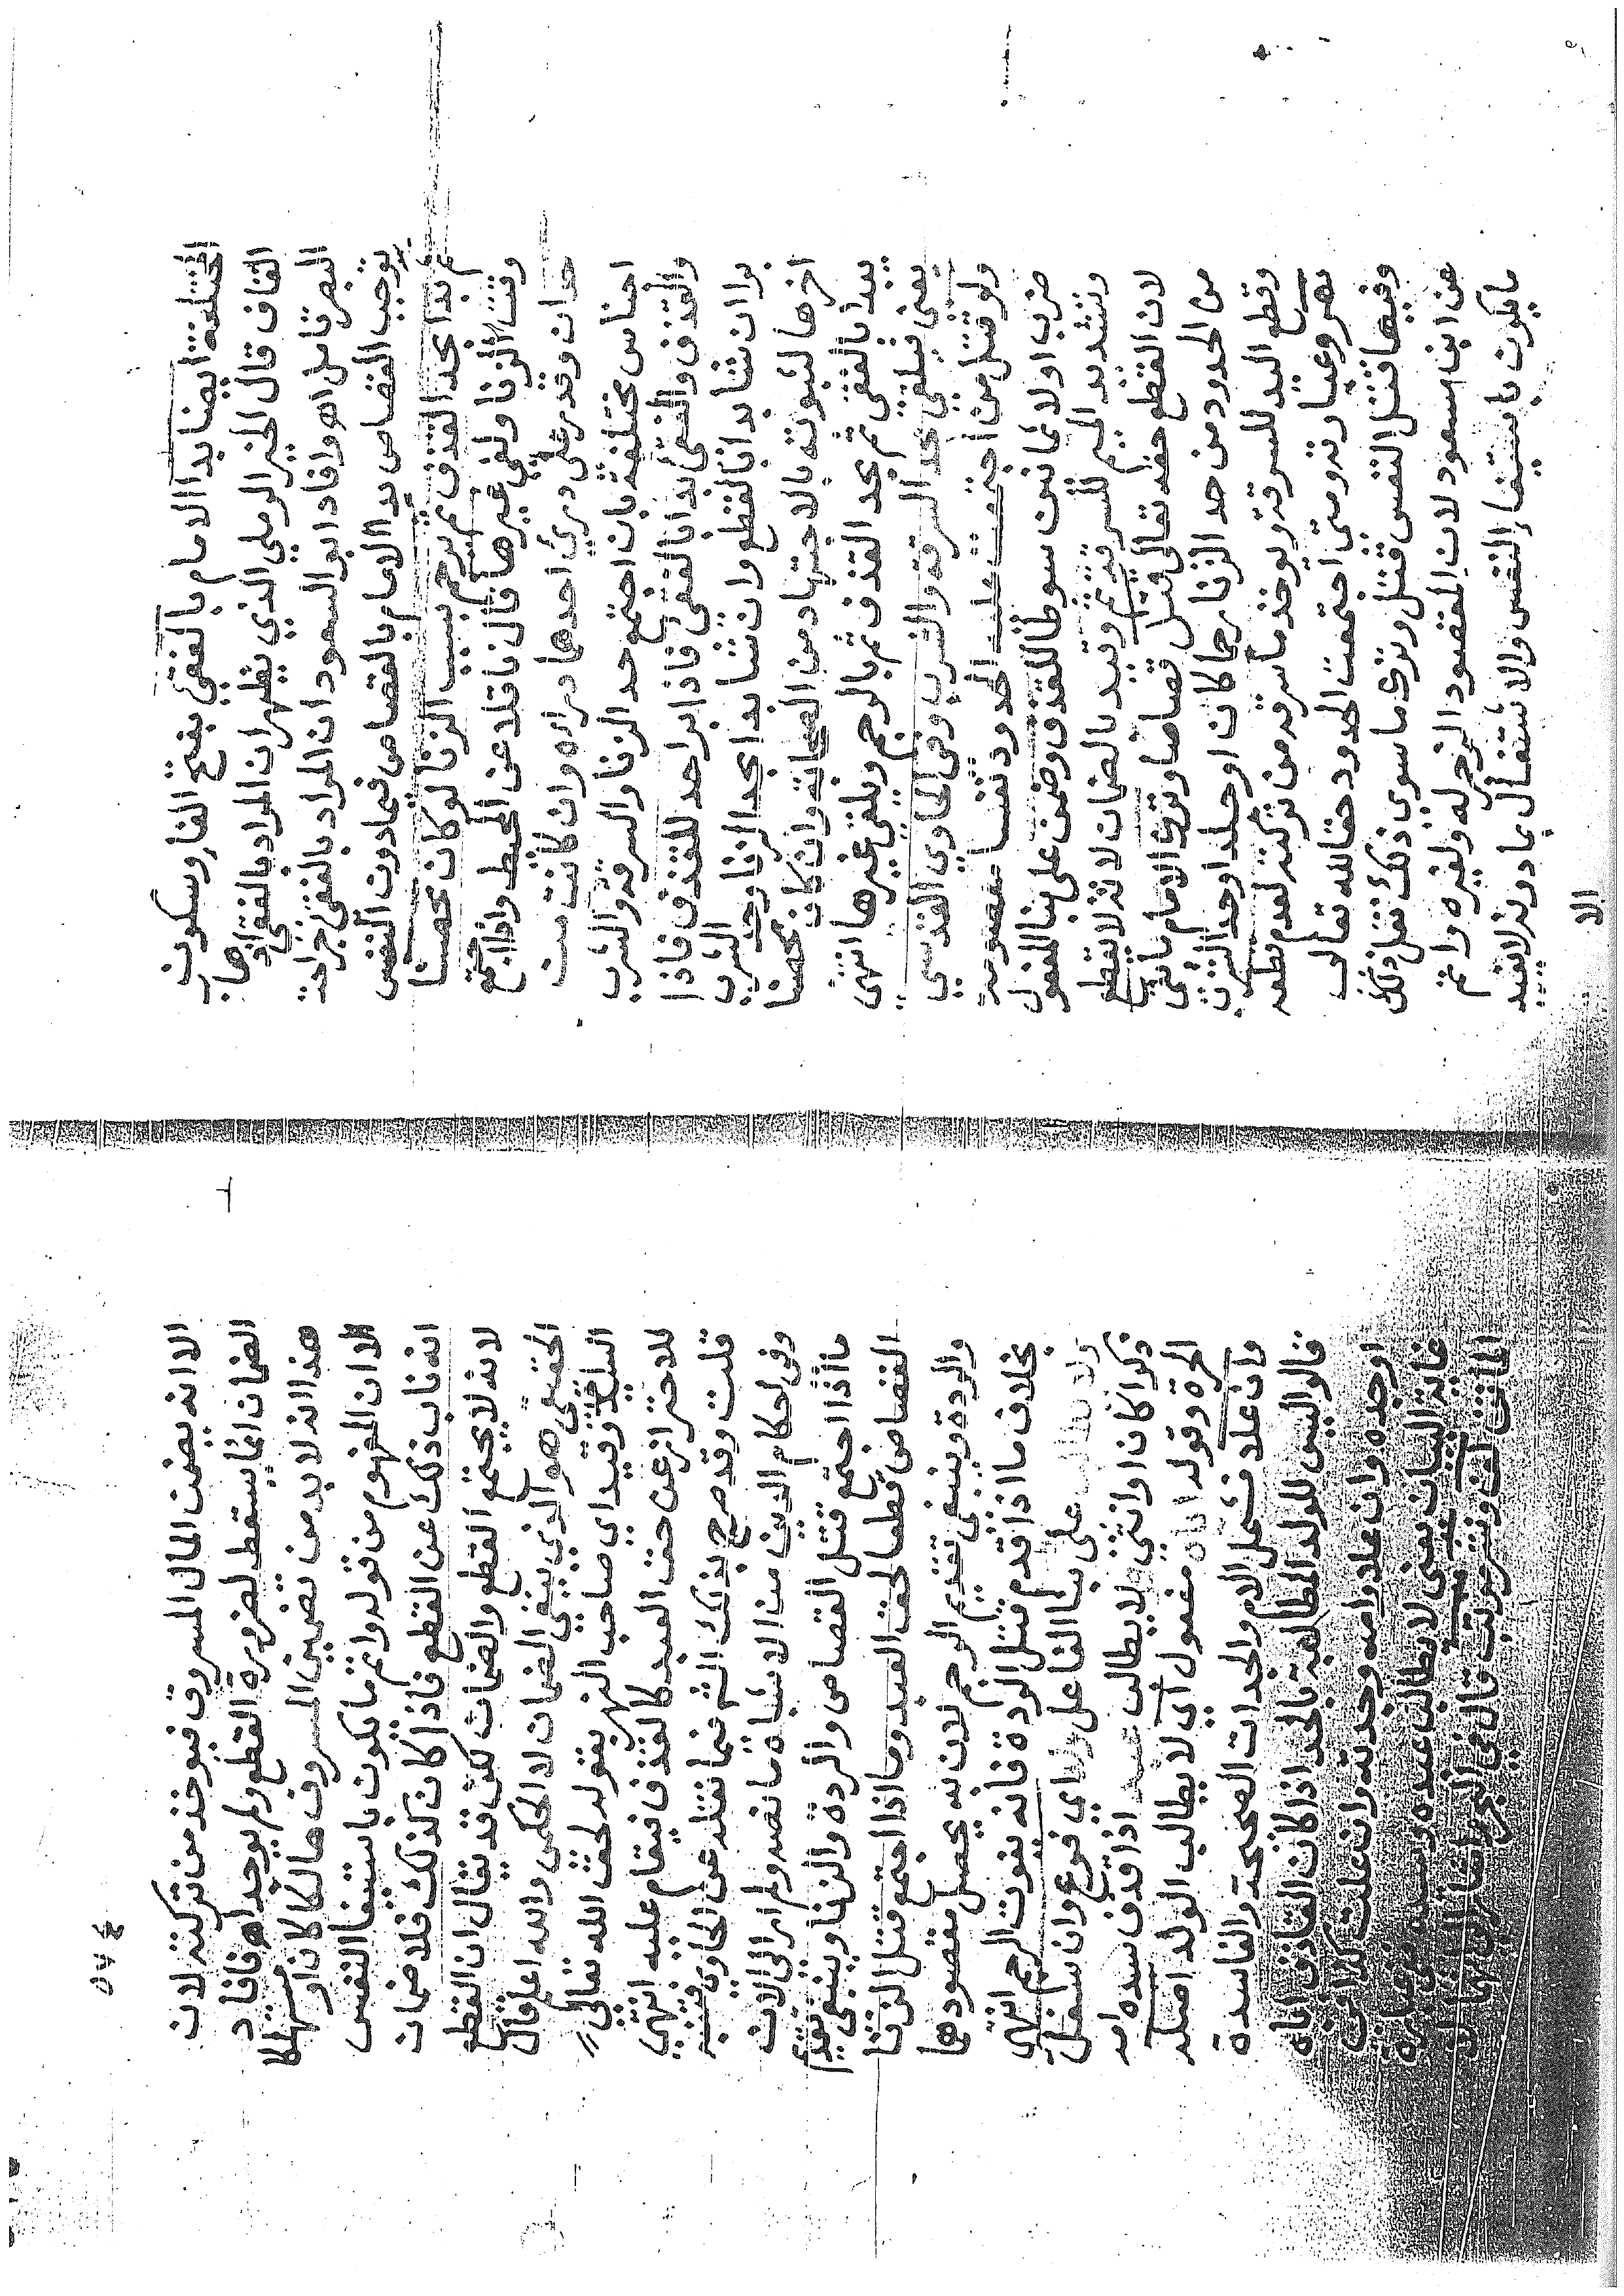 المختلفة ايضا بدا الامام بالفقئ بفتح الفا وسكون
القاف قال الخير الرملي الذي يظهر ان المراد بالفقئ اذهاب
البصر تامل اهـ وافاد ابو السعود ان المراد بالفقئ جراحة
توجب القصاص بدا الامام بالقصاص فيما دون النفس
ثم بدا بحد القذف ثم يرجم بسبب الزنا لو كان محصنا
ولغي غيرها قال ناقلا عن المحيط واذا اجتمع
حدان وقدر على درئ احدهما دراه وان كانت من
اجناس مختلفة بان اجتمع حد الزنا والسرقة والشرب
والقذف والفقئ بدا بالفقئ فاذا برا حد للقذف فاذا
برا ان شا بدا بالقطع وان شا بدا بحد الزنا وحد الشرب
اخرها لثبوته بالاجتهاد من الصحابة وان كان محصنا
يبدا بالفقئ ثم بحد القذف ثم بالرجم ويلغي غيرها انتهى
يعني فيلغي حد السرقة والشرب وفي الحاوي القدسي
ولو قتل من اجتمعت عليه الحدود نفسا معصومة
ضرب اولا ثمانين سوطا للقذف وضمن على بنا المفعول
وتشديد الميم للسرقة ثم وقيد بالضمان لانه لا يقطع
لان القطع حقه تعالى قتل قصاصا وترك الامام باقي
من الحدود من حد الزنا رجما كان او جلدا وحد الشرب
وقطع اليد للسرقة ويوخذ ما سرقه من تركته لعدم قطعه
نهر وعبارته ومتى اجتمعت الحدود حقا لله تعالى
وفيها قتل النفس قتل وترك ما سوى ذلك نقل ذلك
عن ابن مسعود لان المقصود الزجر له ولغيره واتم
ما يكون باستيفاء النفس والاشتغال بما دونه لا يفيد
الا
٥٧٤
الا انه يضمن المال المسروق فيوخذ من تركته لان
الضمان انما يسقط لضرورة القطع ولم يوجد اهـ فافاد
هذا انه لا بد من تضمين المسروق هالكا كان او مستهلكا
الا ان المفهوم من قوله واتم ما يكون باستيفا النفس
انه ناب ذلك عن القطع فاذا كان كذلك فلا ضمان
لانه لا يجتمع القطع والضمان لكن قد يقال ان القطع
الحقيقي هو الذي ينفي الضمان لا الحكمي والله اعلم قال
السيد وقيد اي صاحب النهر بقوله لحق الله تعالى
للاحتراز عن حق العبد كالقذف فيقام عليه انتهى
قلت وقد صرح بذلك الشم فيما نقله عن الحاوي قنية
وفي احكام الدين من الاشباه ما نصه ولم ار الى الان
ما اذا اجتمع قتل القصاص والردة والزنا وينبغي تقديم
القصاص قطعا لحق العبد وما اذا اجتمع قتل الزنا
والردة وينبغي تقديم الرجم لان به يحصل مقصودهما
بخلاف ما اذا قدم قتل الردة فانه يفوت الرجم انتهى
ولا يطالب على بنا الفاعل ولد اي فرع وان سفل
ذكرا كان او انثى ولا يطالب عبد اذا قذف سيده امه
الحرة وقوله اباه مفعول اي لا يطالب الولد اصله
وان علا فشمل الام والجدات الصحيحة والفاسدة
قالوا ليس للولد المطالبة بالحد اذا كان القاذف اباه
او جده وان علا وامه وجدته وان علت كذا في
غاية البيان يعني لا يطالب عبده
الميت قال في البحر